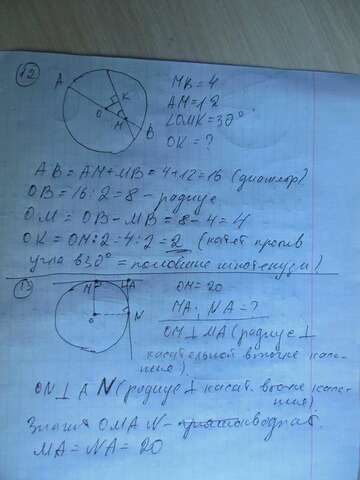 12
A
K
O
M
B
MB = 4
AM = 12
∠OMK = 30°
OK = ?
AB = AM + MB = 4 + 12 = 16 (диаметр)
OB = 16 : 2 = 8 - радиус
OM = OB - MB = 8 - 4 = 4
OK = OM : 2 = 4 : 2 = 2 (катет против
угла в 30° = половине гипотенузы)
13
M
A
O
N
OM = 20
MA; NA = ?
OM ⊥ MA (радиус ⊥
касательной в точке каса-
ния)
ON ⊥ AN (радиус ⊥ касат. в точке касания)
Значит OMAN - квадрат.
MA = NA = 20